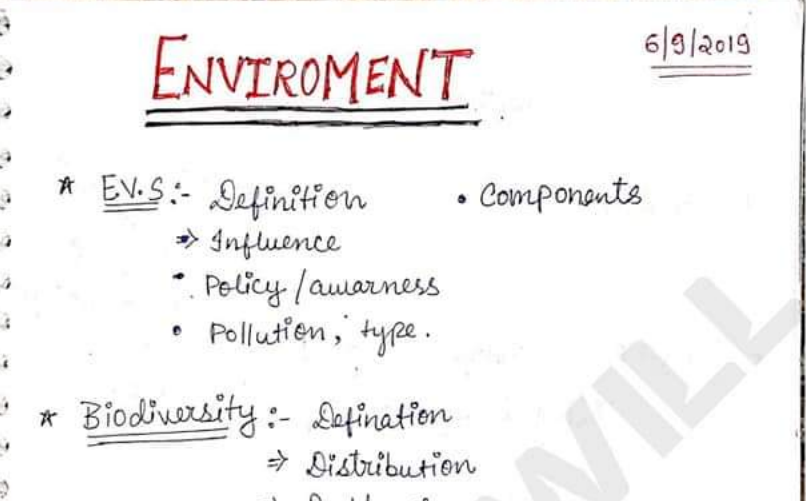 ENVIROMENT
6/9/2019
☆ EV.S:- Definition • Components
⇒ Influence
• Policy/awarness
• Pollution, type.
☆ Biodiversity:- Defination
⇒ Distribution
WILL